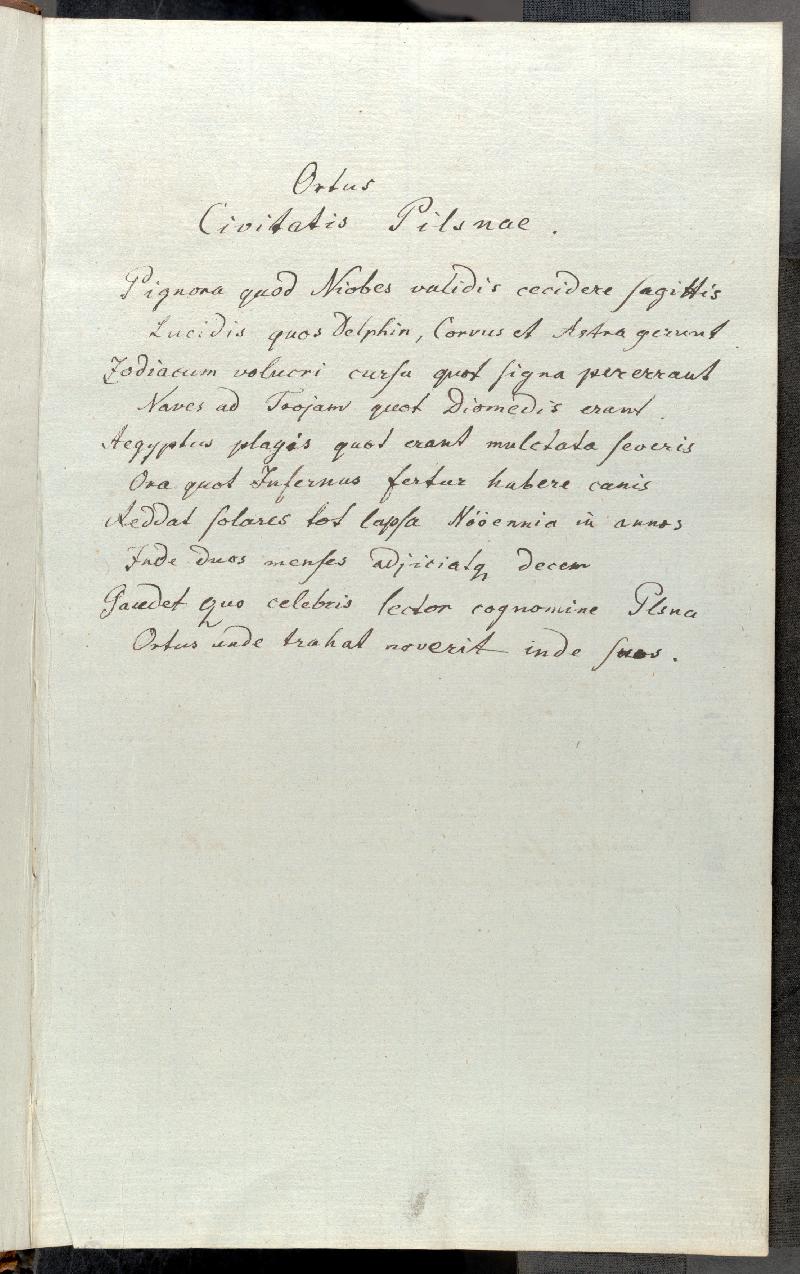 Ortus
Civitatis Pilsnae.
Pignora quod Niobes validis cecidere sagittis
Lucidis quos Delphin, Corvus et Astra gerunt
Zodiacum volucri cursu quot signa pererrant
Naves ad Trojam quot Diomedis erant
Aegyptus plagis quot erant mulctata severis
Ora quot Infernus fertur habere canis
Reddat solares tot lapsa in annos
Inde duos menses adjiciatq decem
Gaudet quo celebris lector cognomine Plsna
Ortus unde trahat noverit inde suos.